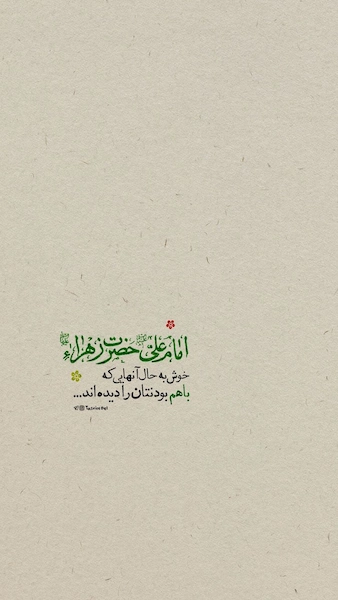 امام علی حضرت زهرا
خوش به حال آنهایی که
باهم بودنتان را دیده اند...